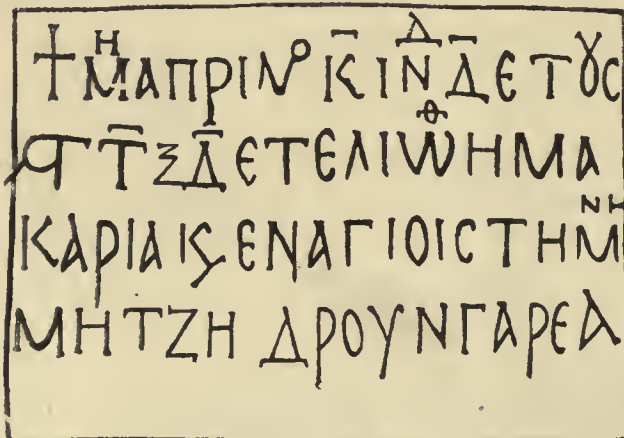 † Μᴴ ΑΠΡΙΝº Κ̅ ΙΝᐞ Δ̅ ΕΤȢС
Ϛ Τ̅ Ξ Δ̅ ΕΤΕΛΙѠᶿΗ Η ΜΑ
ΚΑΡΙΑ ΙϚ ΕΝ ΑΓΙΟΙС ΤΗΜΝΗ
ΜΗΤΖΗ ΔΡΟΥΝΓΑΡΕΑ